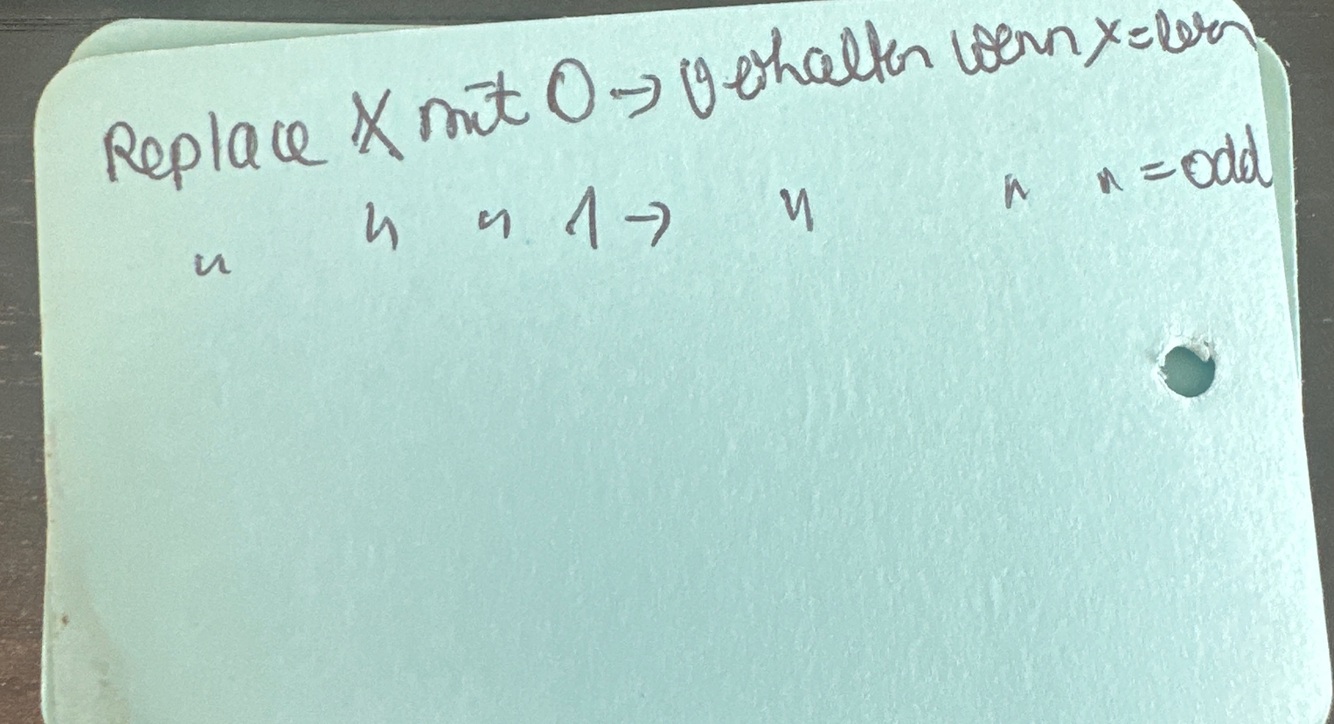 Replace X mit 0 → Verhalten wenn x = even
" " " 1 → " " " = odd